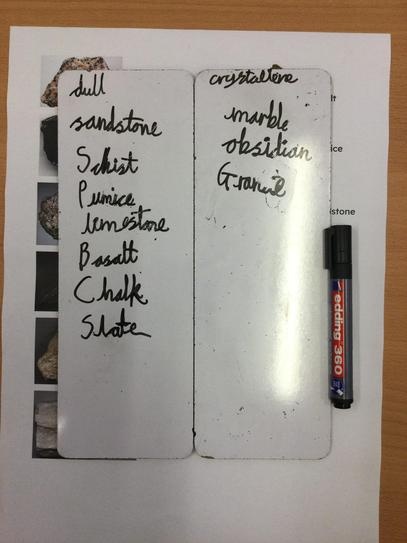 dull
sandstone
Schist
Pumice
limestone
Basalt
Chalk
Slate
crystaltene
marble
obsidian
Granite
lt
ice
stone
edding 360